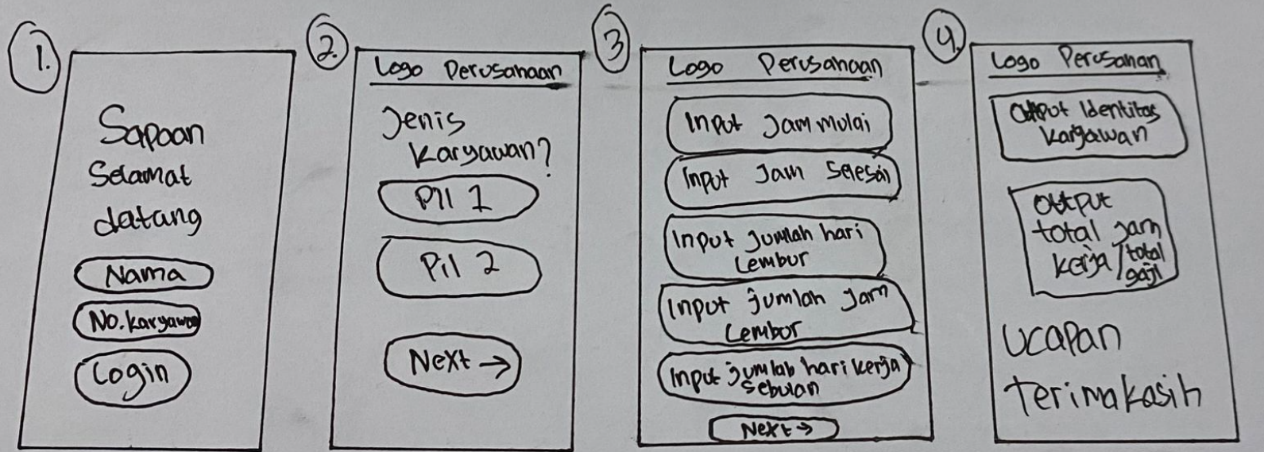 1.
Sapaan
Selamat
datang
Nama
No. Karyawan
Login
2.
Logo Perusahaan
Jenis
Karyawan?
Pil 1
Pil 2
Next →
3
Logo Perusahaan
Input Jam mulai
Input Jam Selesai
Input Jumlah hari
Lembur
Input jumlah Jam
Lembur
Input jumlah hari kerja
Sebulan
Next →
4.
Logo Perusahan
Output Identitas
Karyawan
Output
total jam
kerja/total
gaji
Ucapan
Terimakasih